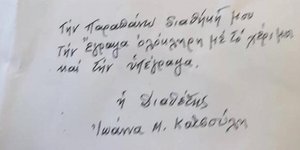 Τήν παραπάνω διαθήκη μου
τήν ἔγραψα ὁλόκληρη μέ τό χέρι μου
καί τήν ὑπέγραψα.
ἡ Διαθέτης
Ἰωάννα Μ. Κατσούλη